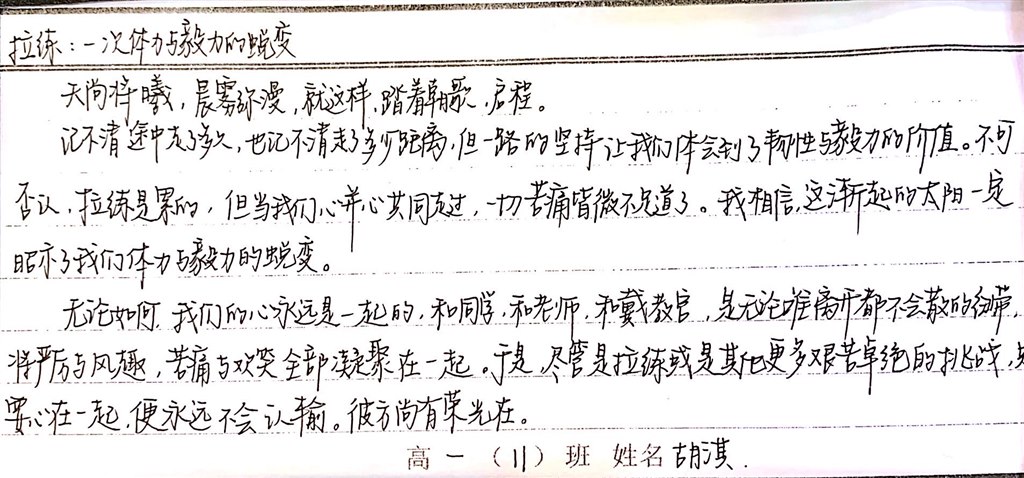 拉练：一次体力与毅力的蜕变
天尚将曦，晨雾弥漫，就这样，踏着朝歌，启程。
记不清途中走了多久，也记不清走了多少距离，但一路的坚持让我们体会到了韧性与毅力的价值。不可
否认，拉练是累的，但当我们心并心共同走过，一切苦痛皆微不足道了。我相信，这渐起的太阳一定
昭示了我们体力与毅力的蜕变。
无论如何，我们的心永远是一起的，和同学，和老师，和戴教官，是无论谁离开都不会散的纽带，
将严厉与风趣，苦痛与欢笑全部凝聚在一起。于是，尽管是拉练或是其他更多艰苦卓绝的挑战，只
要心在一起，便永远不会认输。彼方尚有荣光在。
高一（11）班 姓名 胡淇.